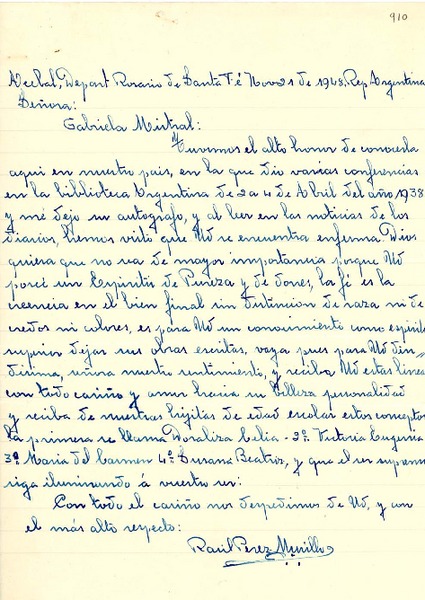 910
Depart Rosario de Santa Fé Nov 21 de 1948. Rep Argentina
Señora:
Gabriela Mistral:
Tuvimos el alto honor de conocerla
aqui en nuestro pais, en la que dio varias conferencias
en la biblioteca Argentina de 2 a 4 de Abril del año 1938
y me dejo su autografo, y al leer en las noticias de los
diarios, hemos visto que Ud se encuentra enferma. Dios
quiera que no sea de mayor importancia porque Ud
posee un Espiritu de Pureza y de dones, la fé es la
creencia en el bien final sin distincion de raza ni de
credos ni colores, es para Ud un conocimiento como espiritu
superior dejar sus obras escritas, vaya pues para Ud
señora nuestro sentimiento, y reciba Ud estas lineas
con todo cariño y amor hacia su belleza personalidad
y reciba de nuestras hijitas de edad escolar estos conceptos
la primera se llama Doraliza Celia - 2º Victoria Eugenia
3º Maria del Carmen 4º Susana Beatriz, y que el ser supremo
siga iluminando á vuestro ser:
Con todo el cariño nos despedimos de Ud, y con
el más alto respecto:
Raúl Perez Murillo